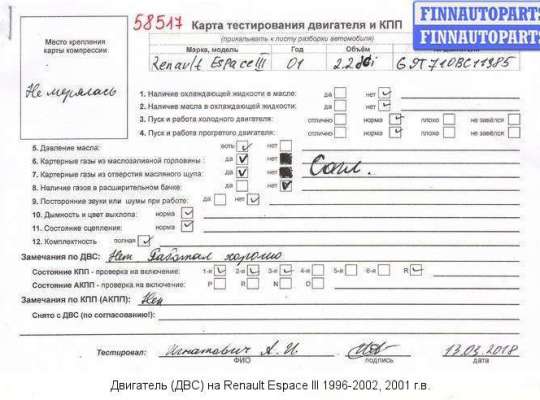 58517
Карта тестирования двигателя и КПП
FINNAUTOPARTS
FINNAUTOPARTS
(прикалывать к листу разборки автомобиля)
Место крепления
карты компрессии
Марка, модель Год Объём
Renault Espace III 01 2.2 dci G9T710BC11985
Не мерялась
1. Наличие охлаждающей жидкости в масле: да нет
2. Наличие масла в охлаждающей жидкости: да нет
3. Пуск и работа холодного двигателя: отлично норма плохо не завёлся
4. Пуск и работа прогретого двигателя: отлично норма плохо не завёлся
5. Давление масла: есть нет
6. Картерные газы из маслозаливной горловины : да нет
7. Картерные газы из отверстия масляного щупа: да нет Сапл.
8. Наличие газов в расширительном бачке: да нет
9. Посторонние звуки или шумы при работе: да нет
10. Дымность и цвет выхлопа: норма
11. Состояние сцепления: норма
12. Комплектность полная
Замечания по ДВС: Нет Работал хорошо
Состояние КПП - проверка на включение: 1-я 2-я 3-я 4-я 5-я 6-я R
Состояние АКПП - проверка на включение: P R N D
Замечания по КПП (АКПП): Нет
Снято с ДВС (по согласованию!):
Тестировал: Игнатович А.И. 13.03.2018
ФИО подпись дата
Двигатель (ДВС) на Renault Espace III 1996-2002, 2001 г.в.